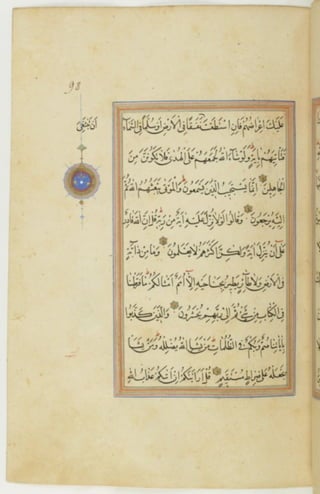 98
ان تبتغي
عليك اعراضهم فان استطعت نفقا في الارض او سلما في السماء
فتأتيهم بآية ولو شاء الله لجمعهم على الهدى فلا تكونن من
الجاهلين انما يستجيب الذين يسمعون والموتى يبعثهم الله ثم
اليه يرجعون وقالوا لولا نزل عليه آية من ربه قل ان الله قادر
على ان ينزل آية ولكن اكثرهم لا يعلمون وما من دابة
في الارض ولا طائر يطير بجناحيه الا امم امثالكم ما فرطنا
في الكتاب من شيء ثم الى ربهم يحشرون والذين كذبوا
بآياتنا صم وبكم في الظلمات من يشأ الله يضلله ومن يشأ
يجعله على صراط مستقيم قل ارأيتكم ان اتاكم عذاب الله